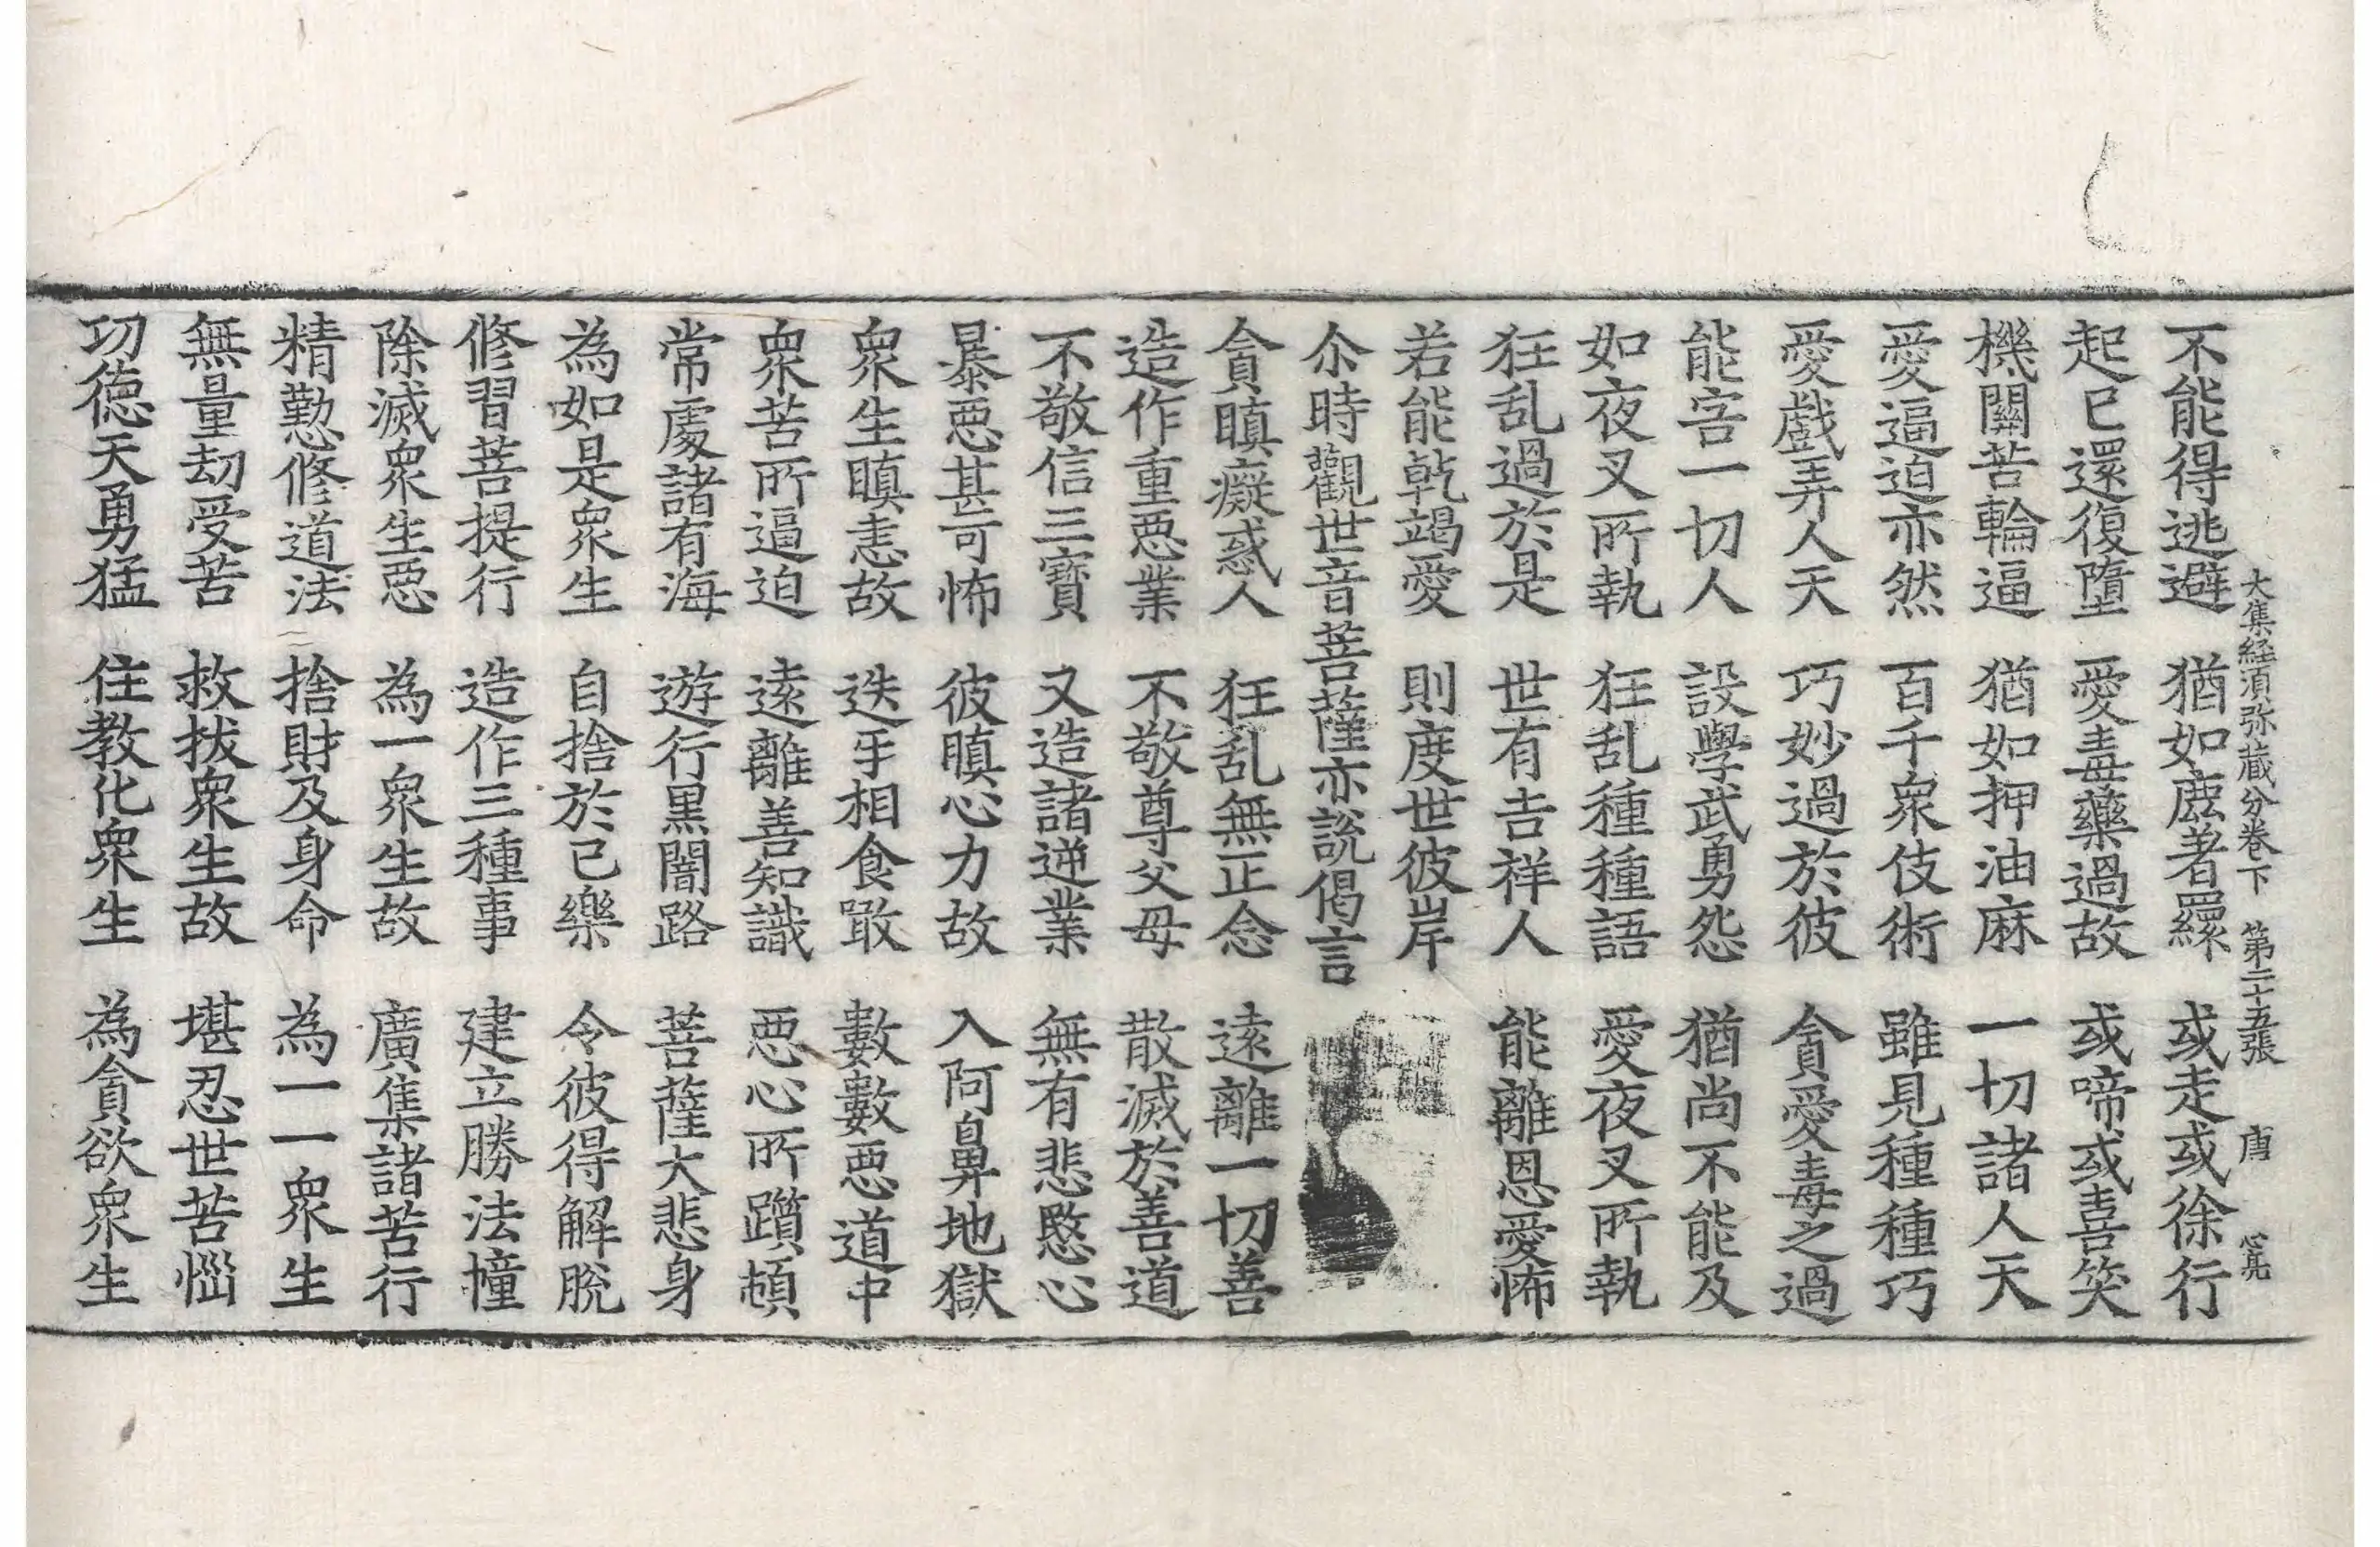 大集経須弥藏分卷下 第二十五張 唐
不能得逃避 猶如鹿著羂 或走或徐行
起已還復墮 愛毒藥過故 或啼或喜笑
機關苦輪逼 猶如押油麻 一切諸人天
愛逼迫亦然 百千衆伎術 雖見種種巧
愛戲弄人天 巧妙過於彼 貪愛毒之過
能害一切人 設學武勇怨 猶尚不能及
如夜叉所執 狂乱種種語 愛夜叉所執
狂乱過於是 世有吉祥人 能離恩愛怖
若能乾竭愛 則度世彼岸
尒時觀世音菩薩亦說偈言
貪瞋癡惑人 狂乱無正念 遠離一切善
造作重惡業 不敬尊父母 散滅於善道
不敬信三寶 又造諸逆業 無有悲愍心
暴惡甚可怖 彼瞋心力故 入阿鼻地獄
衆生瞋恚故 迭㸦相食噉 數數惡道中
衆苦所逼迫 遠離善知識 惡心所躓頓
常處諸有海 遊行黑闇路 菩薩大悲身
為如是衆生 自捨於己樂 令彼得解脫
修習菩提行 造作三種事 建立勝法幢
除滅衆生惡 為一衆生故 廣集諸苦行
精懃修道法 捨財及身命 為一一衆生
無量劫受苦 救拔衆生故 堪忍世苦惱
功德天勇猛 住教化衆生 為貪欲衆生